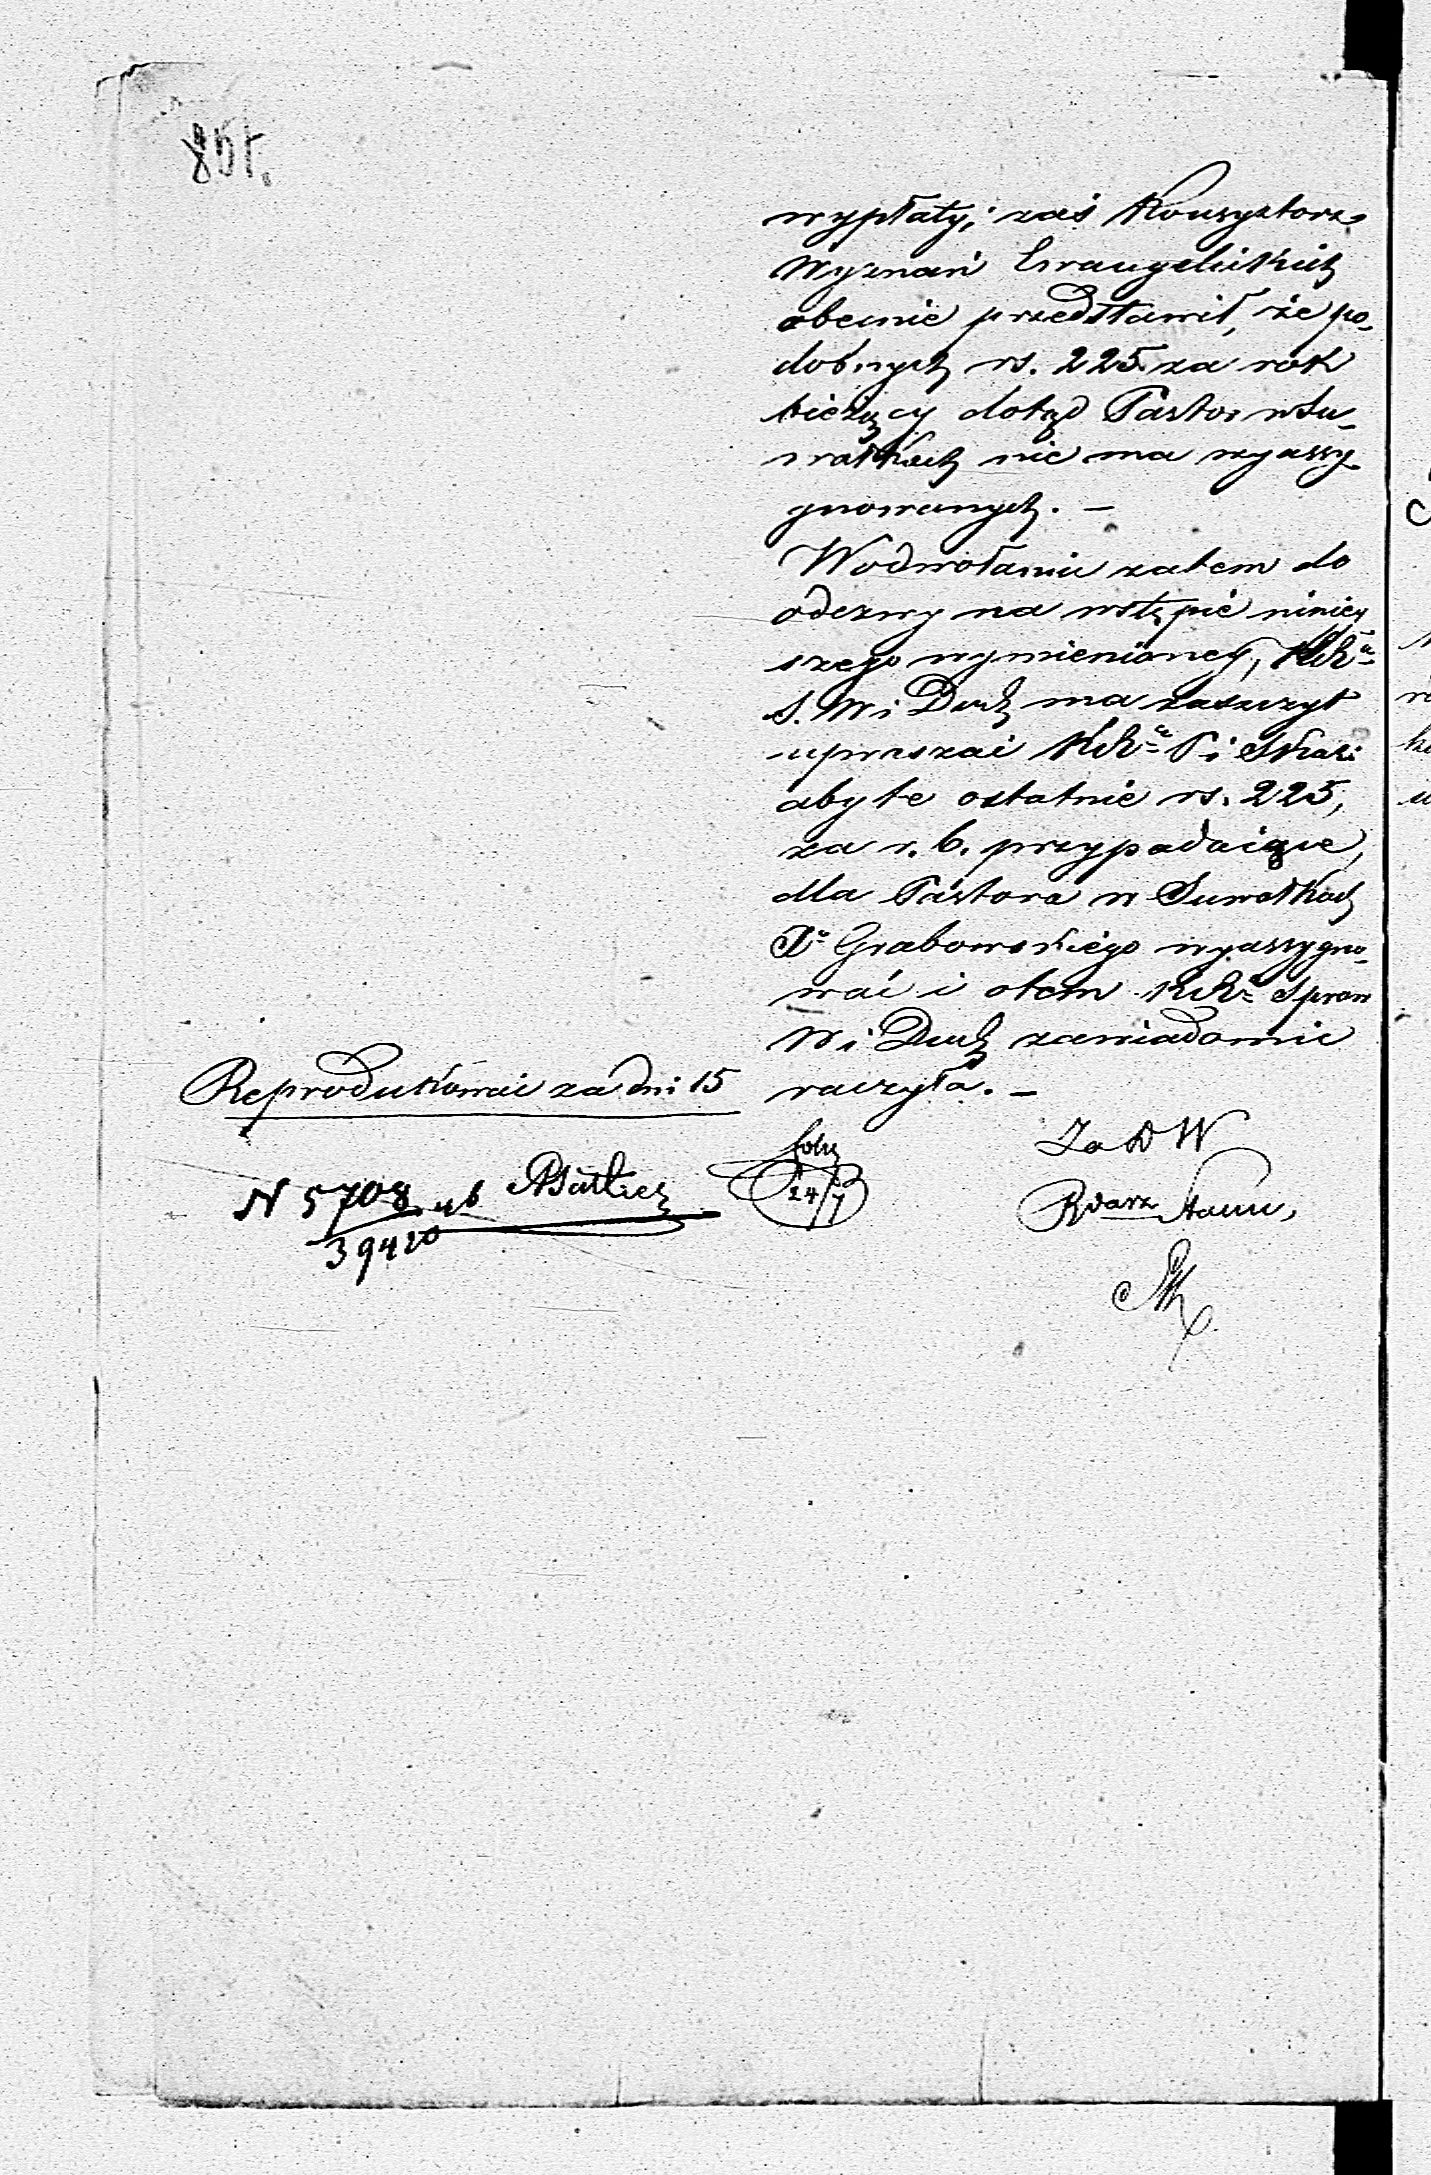 wypłaty; zaś Konsystorz
Wyznań Ewangelickich
obecnie przedstawił, że po-
dobnych rs. 225 za rok
bieżący dotąd Pastor w Su-
wałkach nie ma wyassy-
gnowanych. —
W odwołaniu zatem do
odezwy na wstępie niniey
szego wymienioney,
S. W i Duch ma zaszczyt
upraszać P i Skar:
aby te ostatnie rs. 225,
za r. b. przypadaiące,
dla Pastora w Suwałkach
Xa Grabowskiego wyassygno-
wać i otem Spraw
W i Duch zawiadomić
raczyła. —
Reprodukować za dni 15
Za D W
N 5708
39420
24/7